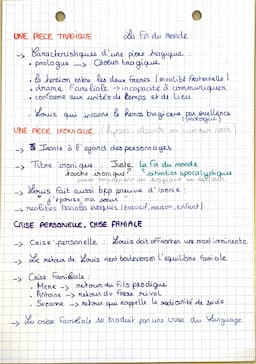 UNE PIECE TRAGIQUE La Fin du monde
→ Caractéristiques d'une pièce tragique :
• prologue → Chœur tragique
• la tension entre les deux frères (rivalité fraternelle)
• drame familiale → incapacité à communiquer
• conforme aux unités de temps et de lieu
• Louis qui incarne le héros tragique par excellence
(prologue)
UNE PIECE IRONIQUE
→ Ironie à l'égard des personnages
→ Titre ironique : Juste la fin du monde
touche ironique situation apocalyptique
→ Louis fait aussi bcp preuve d'ironie :
"j'épouse, ma sœur"
→ réalités banales évoqués (travail, maison, enfant)
CRISE PERSONELLE, CRISE FAMIALE
→ Crise personelle : Louis doit affronter une mort imminente
→ Le retour de Louis vient bouleverser l'équilibre familiale
→ Crise familiale :
• Mère → retour du fils prodigue
• Antoine → retour du frère rival
• Suzanne → retour qui rappelle la médiocrité de sa vie
→ La crise familiale se traduit par une crise du language